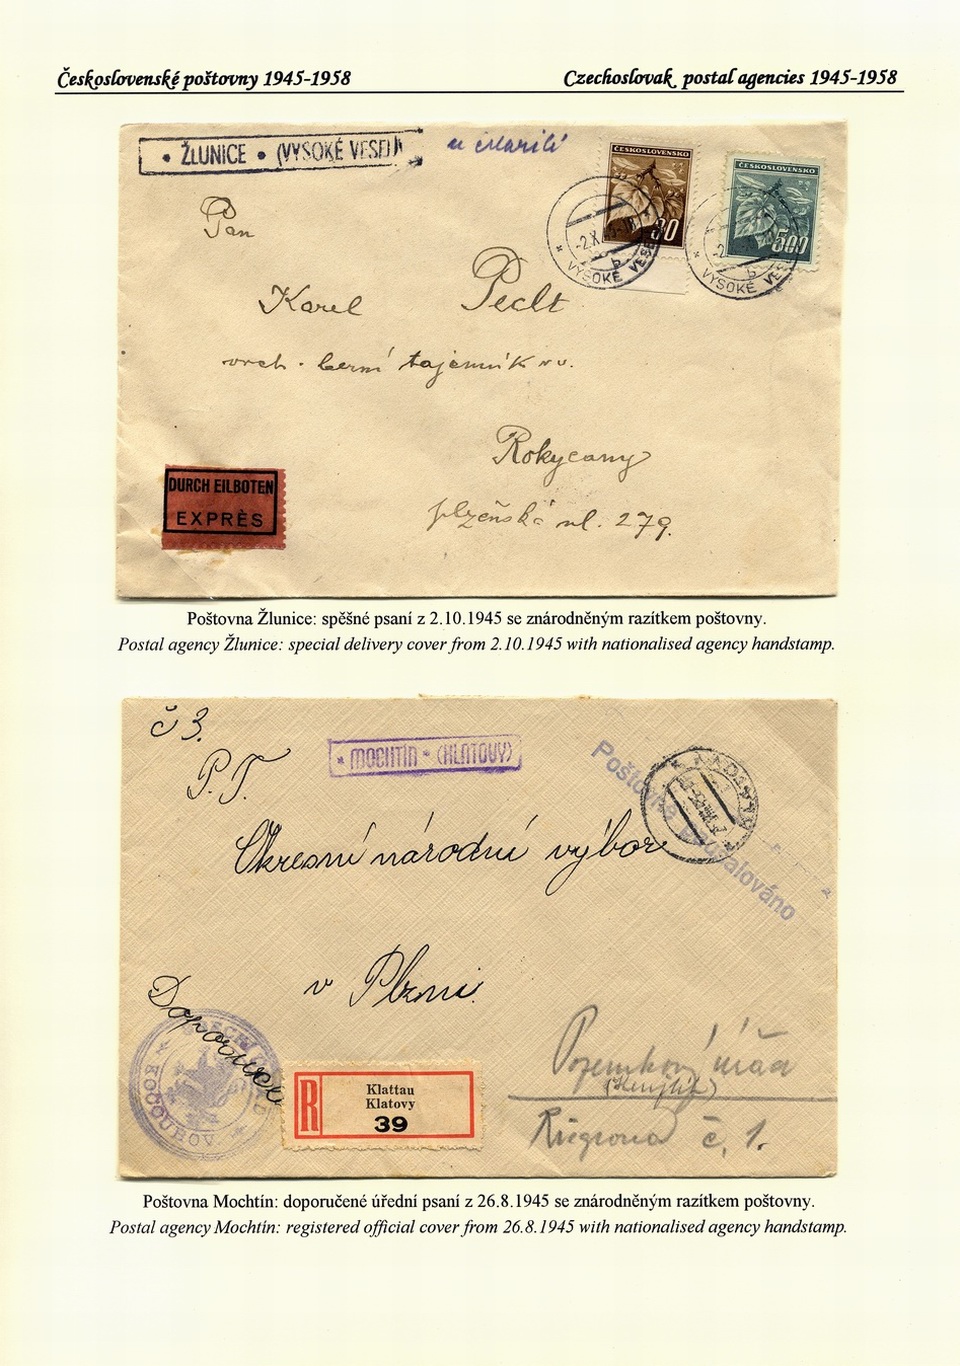 Československé poštovny 1945-1958
Czechoslovak postal agencies 1945-1958
• ŽLUNICE • (VYSOKÉ VESELÍ)
ČESKOSLOVENSKO
30
ČESKOSLOVENSKO
500
-2.X.
VYSOKÉ VESE
b
VYSOKÉ VESE
b
Pan
Karel Peclt
vrch. berní tajemník v v.
Rokycany
plzeňská ul. 279.
DURCH EILBOTEN
EXPRÈS
Poštovna Žlunice: spěšné psaní z 2.10.1945 se znárodněným razítkem poštovny.
Postal agency Žlunice: special delivery cover from 2.10.1945 with nationalised agency handstamp.
č 3.
* MOCHTÍN * (KLATOVY)
P. T.
Okresní národní výbor
v Plzni.
Doporučeně
R
Klattau
Klatovy
39
Pozemkový úřad
Riegrova č. 1.
Poštovna Mochtín: doporučené úřední psaní z 26.8.1945 se znárodněným razítkem poštovny.
Postal agency Mochtín: registered official cover from 26.8.1945 with nationalised agency handstamp.